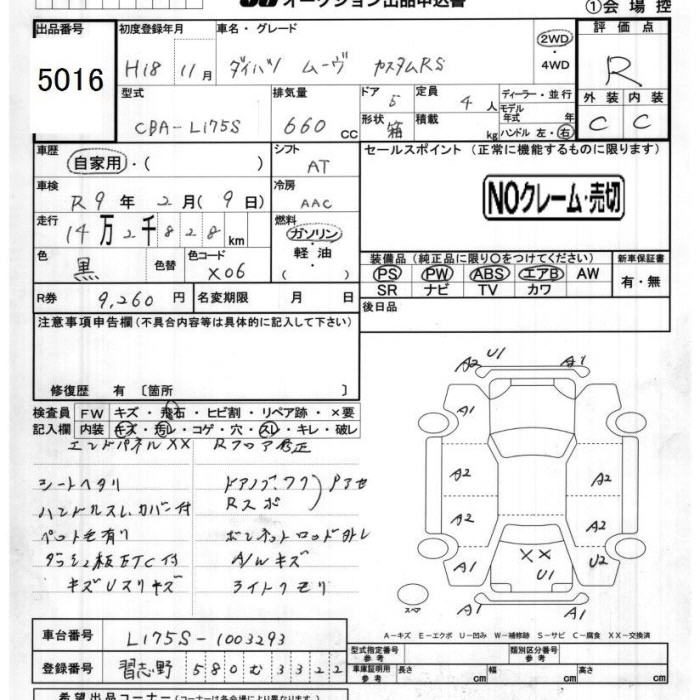 オークション出品申込書
①会場控
出品番号 初度登録年月 車名・グレード 評価点
5016 H18 11月 ダイハツ ムーヴ カスタムRS 2WD・4WD R
型式 排気量 ドア 5 定員 4人 ディーラー・並行 外装 内装
CBA-L175S 660cc 形状 箱 積載 kg モデル年式 年式 ハンドル 左・右 C C
車歴 自家用・( ) シフト AT セールスポイント (正常に機能するものに限ります)
車検 R9年2月(9日) 冷房 AAC NOクレーム・売切
走行 14万2千828km 燃料 ガソリン・軽油・( )
色 黒 色替 色コード X06 装備品(純正品に限り○をつけてください) 新車保証書
PS PW ABS エアB AW 有・無
SR ナビ TV カワ
R券 9,260円 名変期限 月 日 後日品
注意事項申告欄(不具合内容等は具体的に記入して下さい)
修復歴 有 〔箇所 〕
検査員 FW キズ・飛石・ヒビ割・リペア跡・×要
記入欄 内装 キズ・汚レ・コゲ・穴・スレ・キレ・破レ
エンドパネルXX Rフロア修正
シートヘタリ ドアノブ、フク Pアセ
ハンドルスレ、カバー付 Rスポ
ペット毛有り ボンネットロッド外レ
ダッシュ板ETC付 A/Wキズ
キズUスリキズ ライトクモリ
A2 U1 A1
A2
A1
A2 A2
A2 A2
A1 XX U1 U2
A1
スペア
A-キズ E-エクボ U-凹み W-補修跡 S-サビ C-腐食 XX-交換済
車台番号 L175S-1003293 型式指定番号 参考 類別区分番号 参考
登録番号 習志野 580 む 3322 車庫証明用 参考 長さ cm 幅 cm 高さ cm
希望出品コーナー (コーナーは各会場により異なります。)